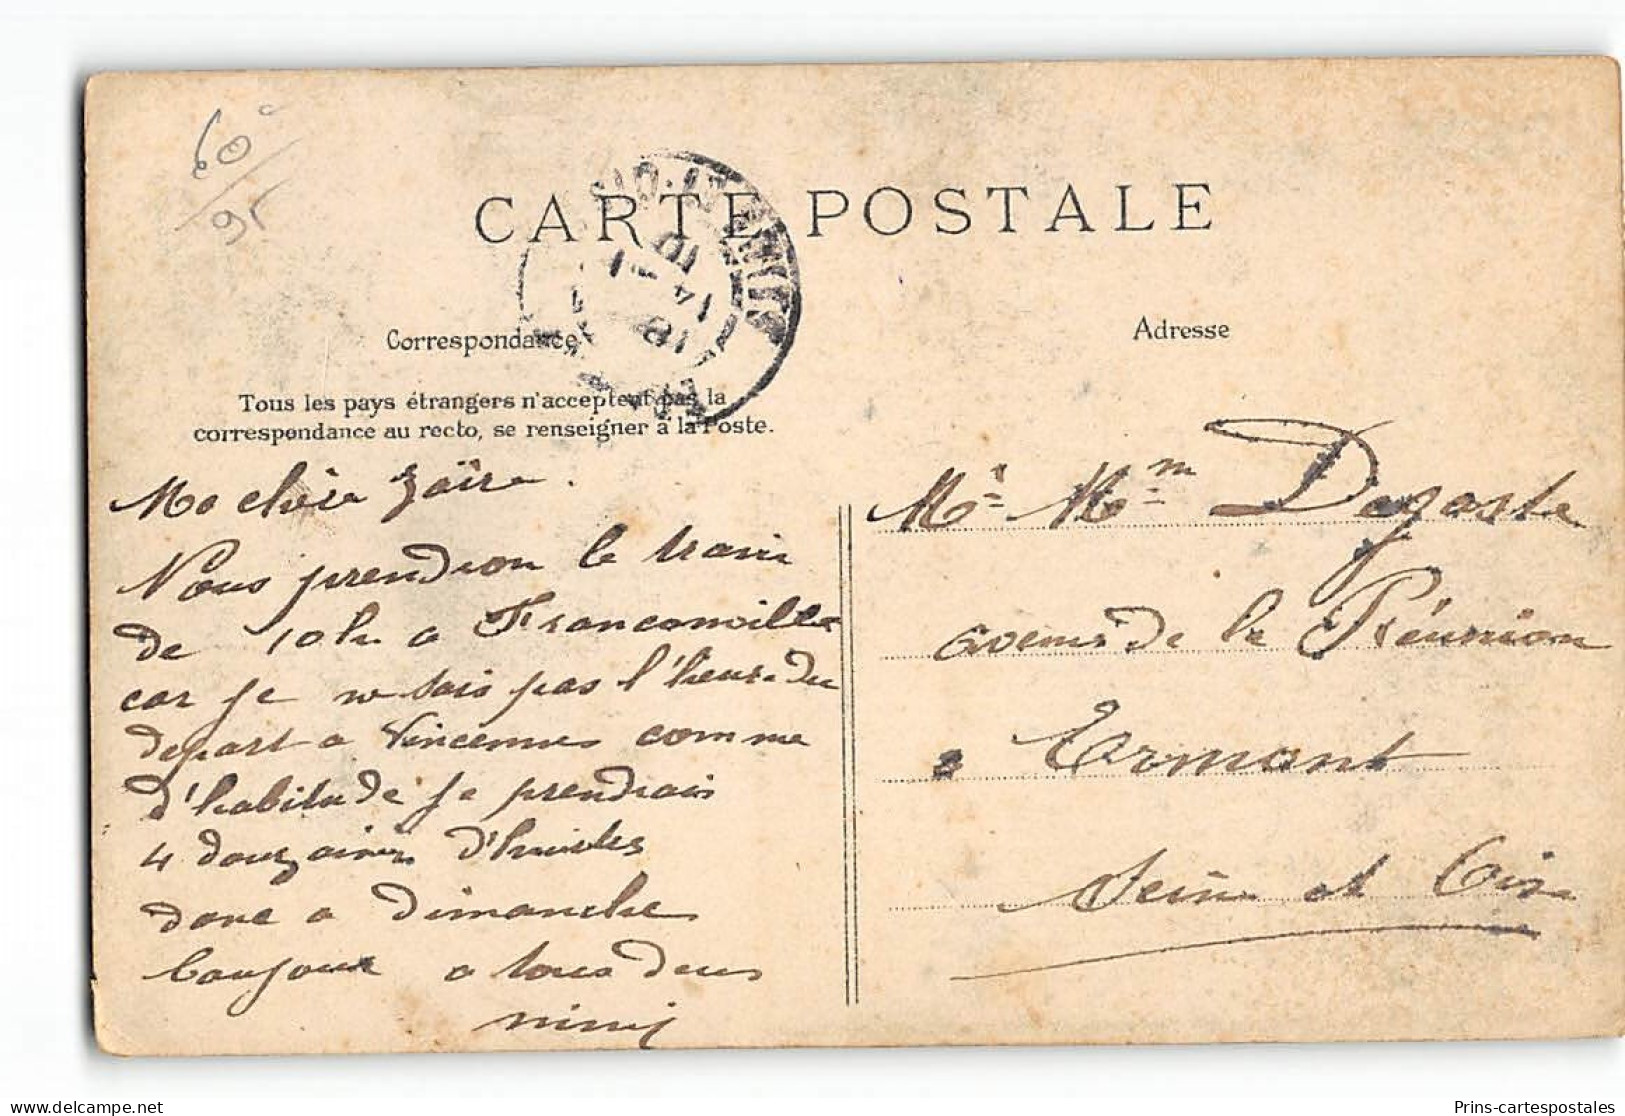 60c
95
CARTE POSTALE
Correspondance
Adresse
Tous les pays étrangers n'acceptent pas la
correspondance au recto, se renseigner à la Poste.
Ma chère Zaïre.
Nous prendron le train
de 10h a Franconville
car je ne sais pas l'heure du
depart a Vincennes comme
d'habitude je prendrais
4 douzaines d'huitres
donc a dimanche
bonjour a tous deux
ninij
Mr Mme Degaste
avenue de la Réunion
a Ermont
Seine et Oise
Prins-cartespostales